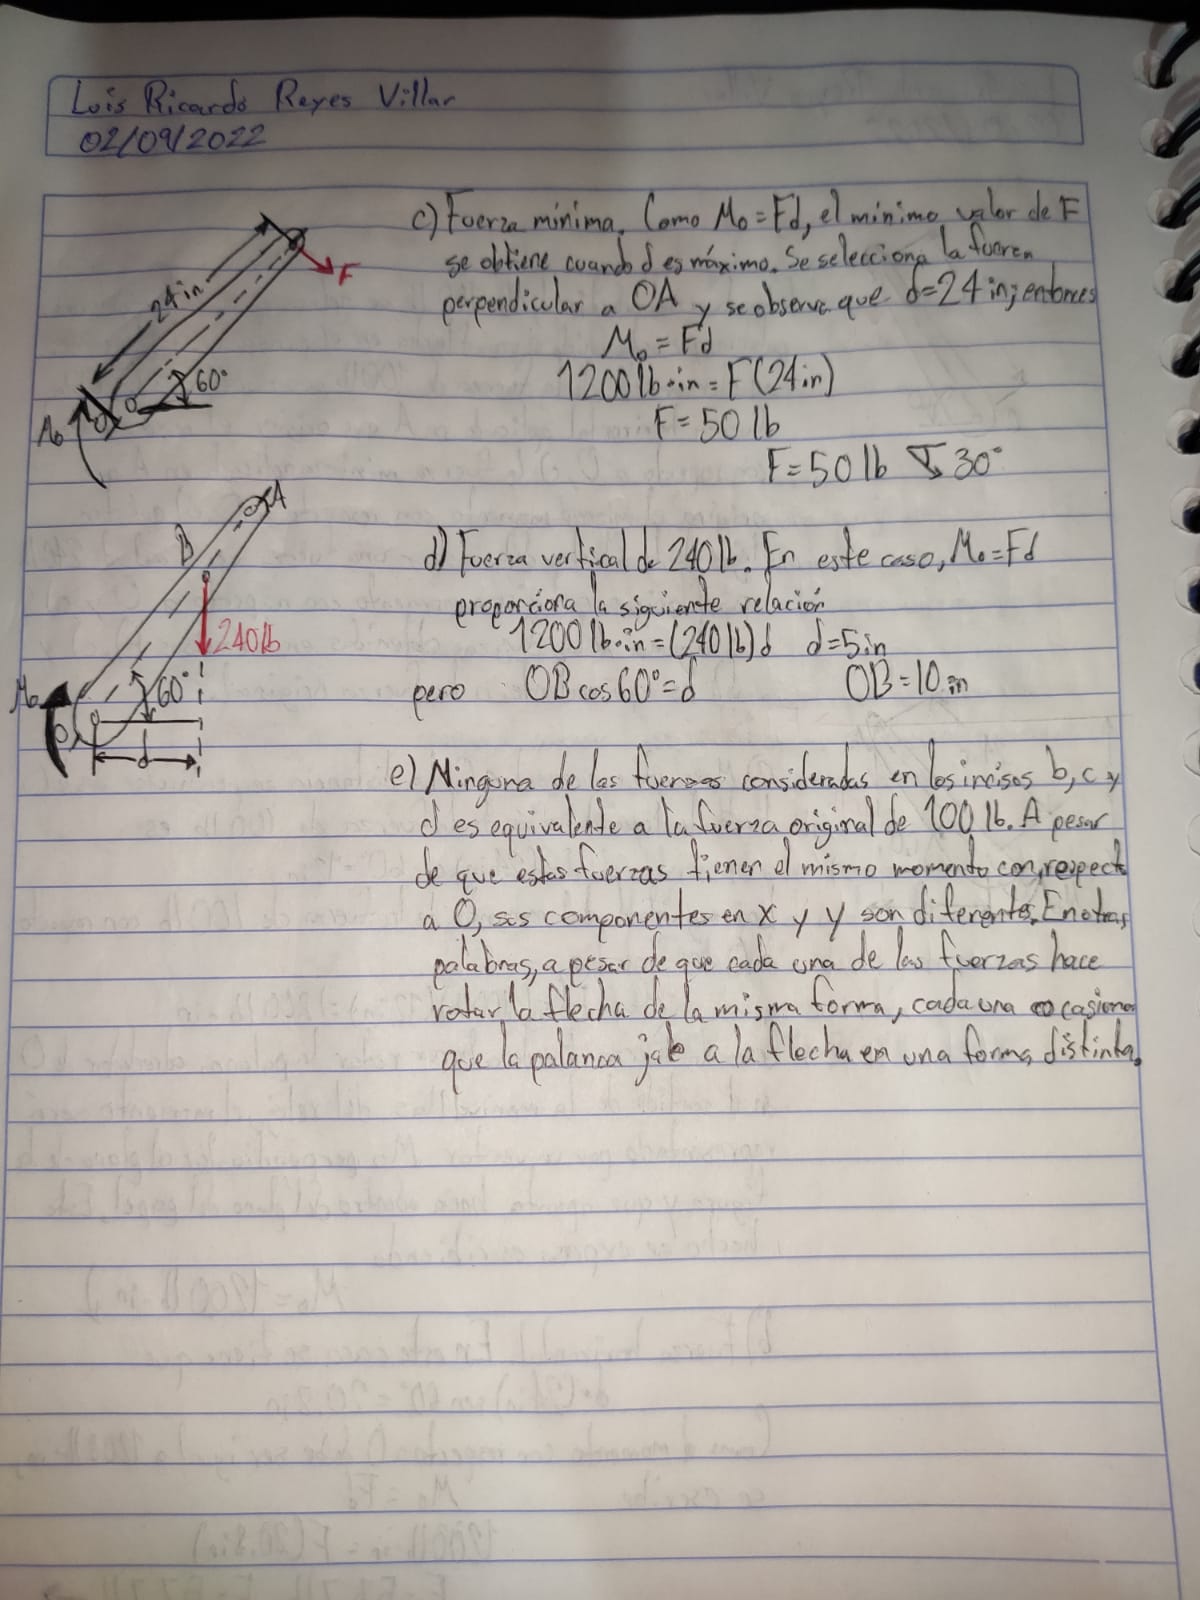 Luis Ricardo Reyes Villar
02/09/2022
c) Fuerza mínima. Como Mo = Fd, el mínimo valor de F
se obtiene cuando d es máximo. Se selecciona la fuerza
perpendicular a OA y se observa que d=24 in; entonces
Mo = Fd
1200 lb·in = F(24in)
F = 50 lb
F = 50 lb 30°
24 in
F
60°
Mo
O
d) Fuerza vertical de 240 lb. En este caso, Mo=Fd
proporciona la siguiente relación
1200 lb·in = (240 lb)d d=5in
pero OB cos60°=d OB=10 in
A
B
240 lb
60°
Mo
O
d
e) Ninguna de las fuerzas consideradas en los incisos b, c y
d es equivalente a la fuerza original de 100 lb. A pesar
de que estas fuerzas tienen el mismo momento con respect
a O, sus componentes en x y y son diferentes. En otras
palabras, a pesar de que cada una de las fuerzas hace
rotar la flecha de la misma forma, cada una ocasiona
que la palanca jale a la flecha en una forma distinta.